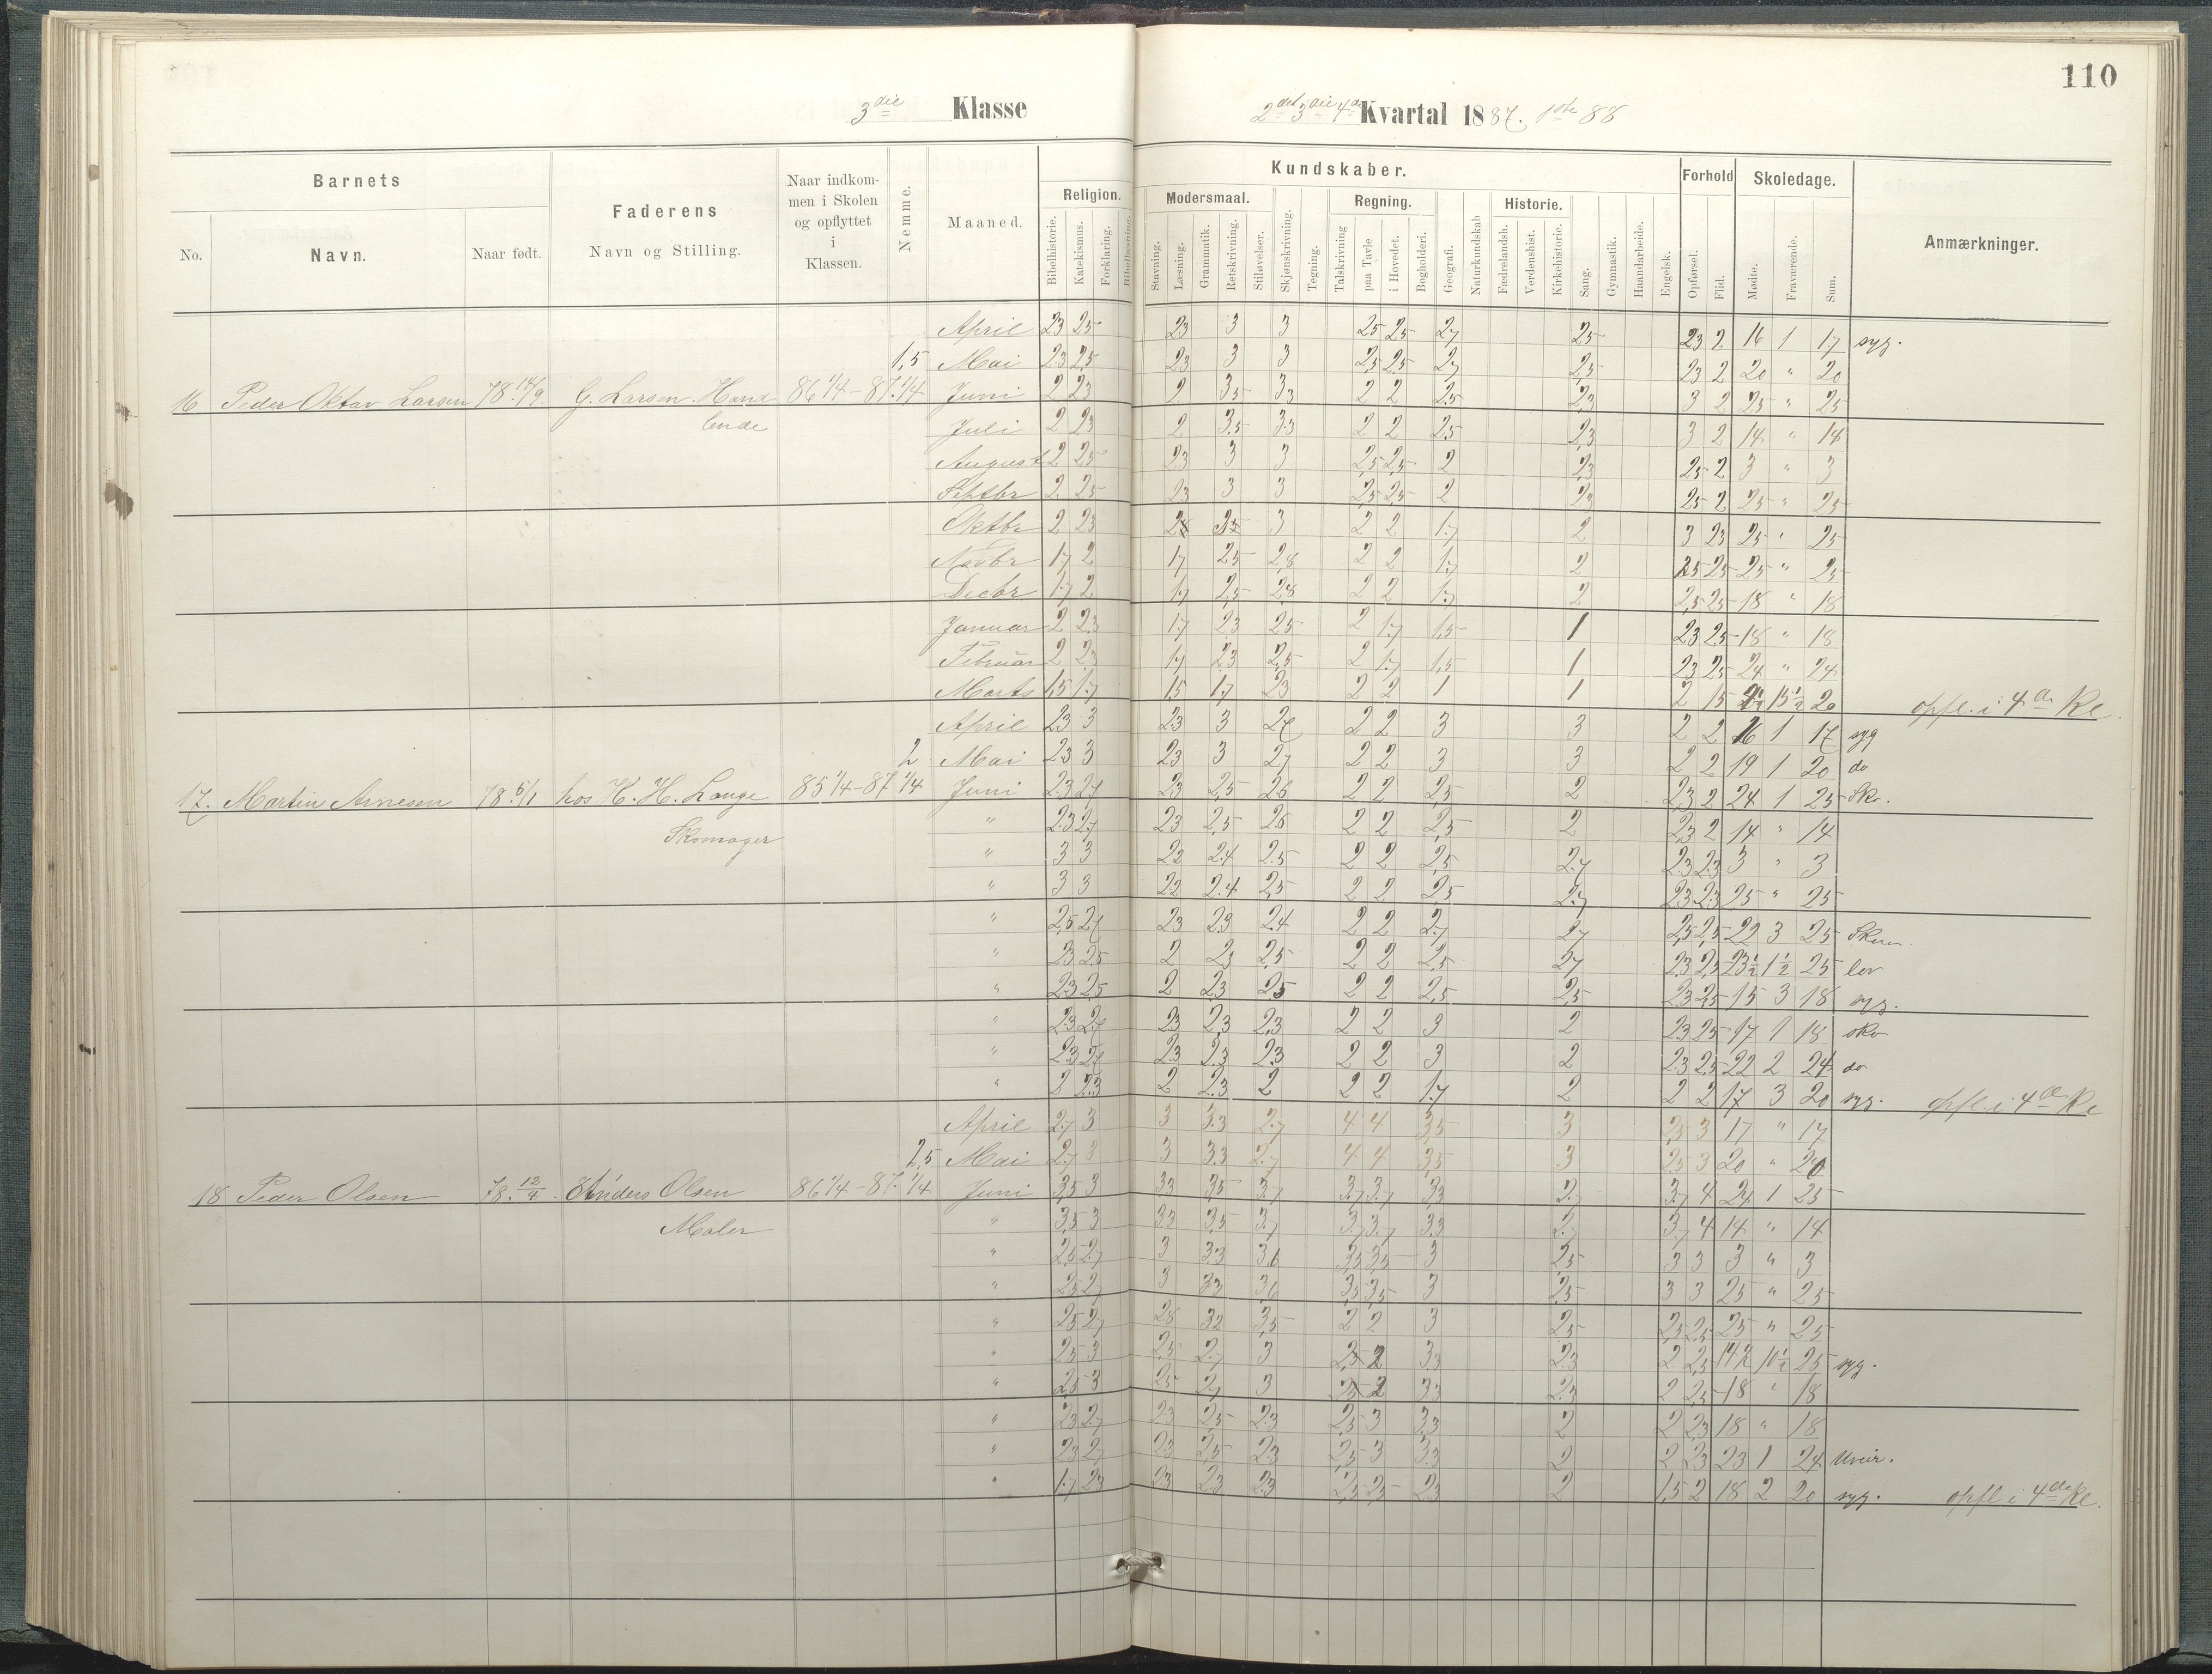 110
3die Klasse
2det 3die 4de Kvartal 1887. 1ste 88
Barnets
No.
Navn.
Naar født.
Faderens
Navn og Stilling.
Naar indkom-
men i Skolen
og opflyttet
i
Klassen.
Nemme.
Maaned.
Kundskaber.
Religion.
Bibelhistorie.
Katekismus.
Forklaring.
Bibellæsning.
Modersmaal.
Stavning.
Læsning.
Grammatik.
Retskrivning.
Stiløvelser.
Skjønskrivning.
Tegning.
Regning.
Talskrivning
paa Tavle
i Hovedet.
Bogholderi.
Geografi.
Naturkundskab
Historie.
Fædrelandsh.
Verdenshist.
Kirkehistorie.
Sang.
Gymnastik.
Haandarbeide.
Engelsk.
Forhold
Opførsel.
Flid.
Skoledage.
Mødte.
Fraværende.
Sum.
Anmærkninger.
April 23 25 23 3 3 25 25 27 25 23 2 16 1 17 syg.
1,5 Mai 23 25 23 3 3 25 25 27 25 23 2 20 " 20
16 Peder Oktav Larsen 78.14/9. G. Larsen Hand 86 1/4 - 87. 1/4 Juni 2 23 2 35 33 2 2 25 23 3 2 25 " 25
lende Juli 2 23 2 35 33 2 2 25 23 3 2 14 " 14
August 2 25 23 3 3 25 25 2 23 25 2 3 " 3
Septbr 2 25 23 3 3 25 25 2 23 25 2 25 " 25
Oktbr 2 23 3 2 2 17 2 3 23 25 " 25
Novbr 17 2 17 25 28 2 2 17 2 25 25 25 " 25
Decbr 17 2 17 25 28 2 2 17 2 25 25 18 " 18
Januar 2 23 17 23 25 2 17 15 1 23 25 18 " 18
Februar 2 23 17 23 25 2 17 15 1 23 25 24 " 24
Marts 15 17 15 17 23 2 2 1 1 2 15 4 1/2 15 1/2 20 opfl. i 4de Kl.
April 23 3 23 3 27 2 2 3 3 2 2 16 1 17 syg
2 Mai 23 3 23 3 27 2 2 3 3 2 2 19 1 20 do
17. Martin Arnesen 78. 6/1 hos H. H. Lange 85 1/4 - 87 1/4 Juni 23 27 23 25 26 2 2 25 2 23 2 24 1 25 Sko.
Skomager " 23 27 23 25 26 2 2 25 2 23 2 14 " 14
" 3 3 22 24 25 2 2 25 27 23 23 3 " 3
" 3 3 22 24 25 2 2 25 27 23 23 25 " 25
" 25 27 23 23 24 2 2 27 27 25 25 22 3 25
" 23 25 2 23 25 2 2 25 27 23 25 23 1/2 1 1/2 25 lov
" 23 25 2 23 25 2 2 25 25 23 25 15 3 18 syg.
" 23 27 23 23 23 2 2 3 2 23 25 17 1 18 sko
" 23 27 23 23 23 2 2 3 2 23 25 22 2 24 do
" 2 23 2 23 2 2 2 17 2 2 2 17 3 20 syg. opfl. i 4de Kl
April 27 3 3 33 27 4 4 35 3 25 3 17 " 17
2,5 Mai 27 3 3 33 27 4 4 35 3 25 3 20 " 20
18 Peder Olsen 78. 12/4 Anders Olsen 86 1/4 - 87. 1/4 Juni 35 3 33 35 37 37 37 33 27 37 4 24 1 25
Maler " 35 3 33 35 37 37 37 33 27 37 4 14 " 14
" 25 27 3 33 36 35 35 3 25 3 3 3 " 3
" 25 27 3 33 36 35 35 3 25 3 3 25 " 25
" 25 27 28 32 35 2 2 3 25 25 25 25 " 25
" 25 3 25 27 3 25 2 33 23 2 25 14 1/2 10 1/2 25 syg.
" 25 3 25 27 3 25 2 33 23 2 25 18 " 18
" 23 27 23 25 23 25 3 33 2 2 23 18 " 18
" 23 27 23 25 23 25 3 33 2 2 23 23 1 24 Uveir.
" 17 23 23 23 23 25 25 23 2 1,5 2 18 2 20 syg. opfl i 4de Kl.